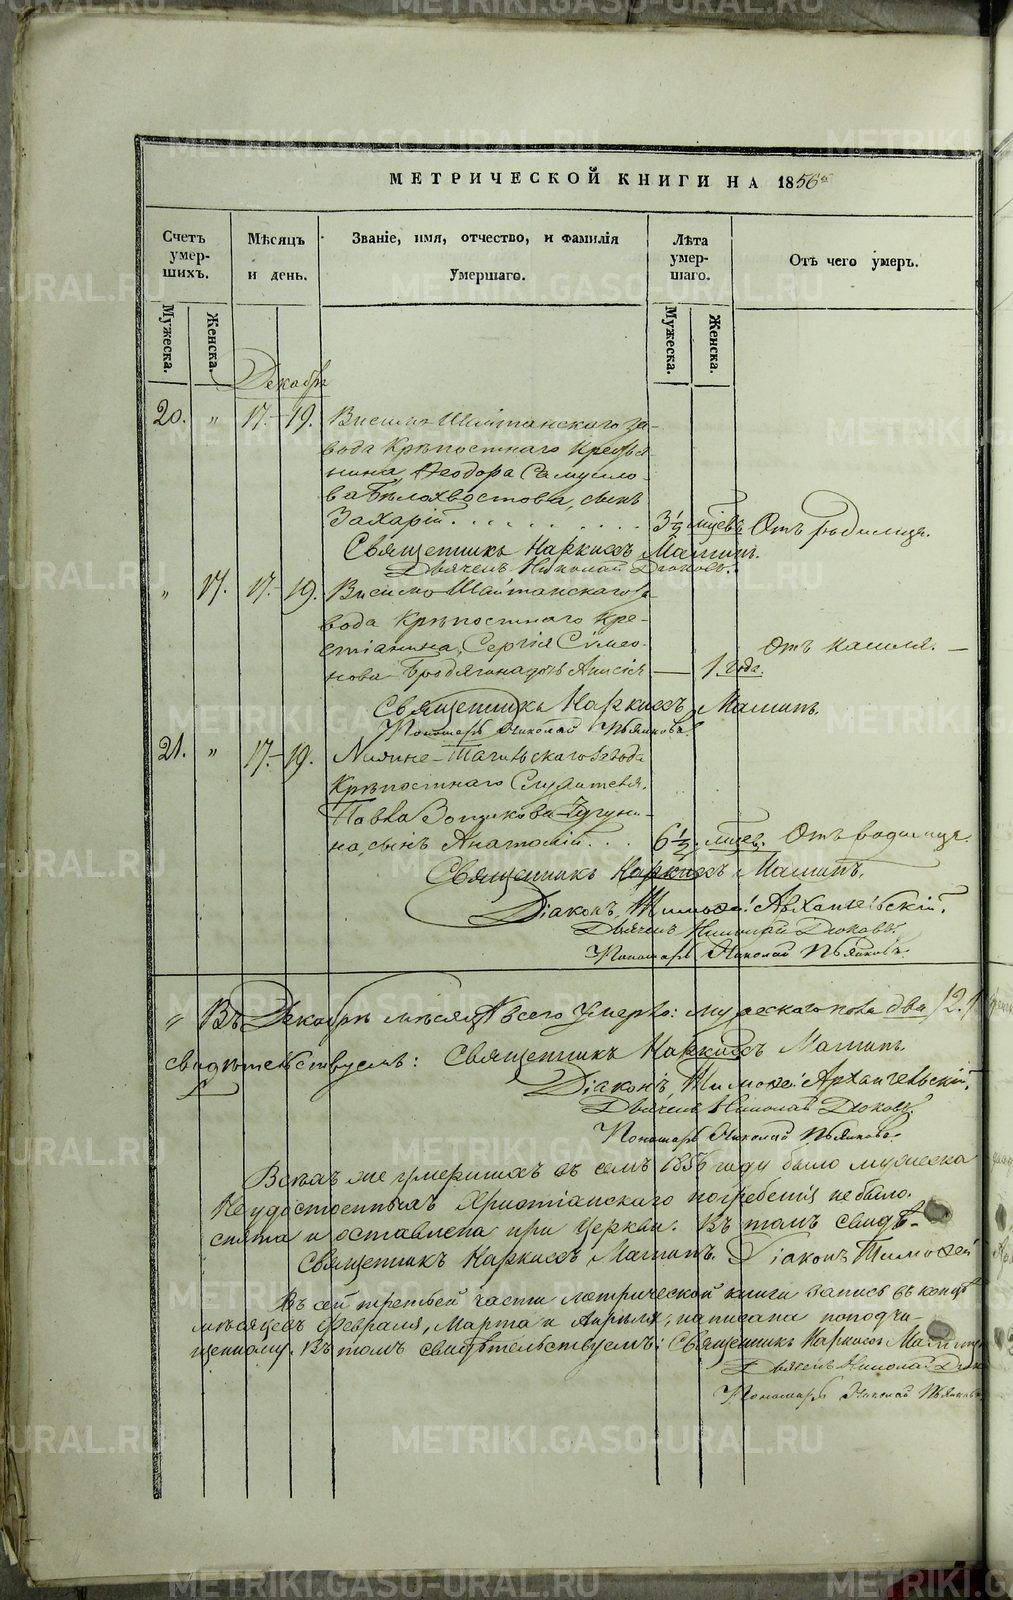 МЕТРИЧЕСКОЙ КНИГИ НА 1856
Счетъ умер-шихъ.
Мѣсяцъ и день.
Званіе, имя, отчество, и фамилія Умершаго.
Лѣта умер-шаго.
Отъ чего умеръ.
Мужеска.
Женска.
Мужеска.
Женска.
Декабрь
20. " 17. 19. Висимо Шайтанскаго за-
вода Крѣпостнаго Крестья
нина, Ѳеодора Самуило-
ва Бѣлохвостова, сынъ
Захарій . . . 3½ мѣсъ Отъ родимца.
Священникъ Наркисъ Маминъ.
Дьячекъ Николай Дюковъ.
" 17. 17. 19. Висимо Шайтанскаго за
вода Крѣпостнаго Кре-
стіанина, Сергія Сѵмео
нова Бродягина дочь Анисія — 1 года. Отъ кашля. —
Священникъ Наркисъ Маминъ.
Пономарь Николай Пьянковъ.
21. " 17. 19. Нижне-Тагильскаго завода
Крѣпостнаго Служителя,
Павла
на, сынъ Анатолій . . . 6½ мѣсяц. Отъ родимца.
Священникъ Наркисъ Маминъ.
Діаконъ Тимоѳей Архангельскій.
Дьячекъ Николай Дюковъ.
Пономарь Николай Пьянковъ.
" Въ Декабрѣ мѣсяцѣ всего Умерло: мужескаго пола два /2./
свидѣтельствуемъ: Священникъ Наркисъ Маминъ.
Діаконъ Тимоѳей Архангельскій,
Дьячекъ Николай Дюковъ.
Пономарь Николай Пьянковъ.
Всѣхъ же умершихъ въ семъ 1856 году было мужеска
Неудостоенныхъ Христіанскаго погребенія не было.
снята и оставлена при Церкви. Въ томъ свидѣ-
Священникъ Наркисъ Маминъ. Діаконъ Тимоѳей
Въ сей третьей части метрической книги запись въ концѣ
мѣсяцевъ Февраля, Марта и Апрѣля, написана по подчи-
щенному. Въ томъ свидѣтельствуемъ: Священникъ Наркисъ Маминъ
Дьячекъ Николай Дюко
Пономарь Николай Пьянковъ
METRIKI.GASO-URAL.RU